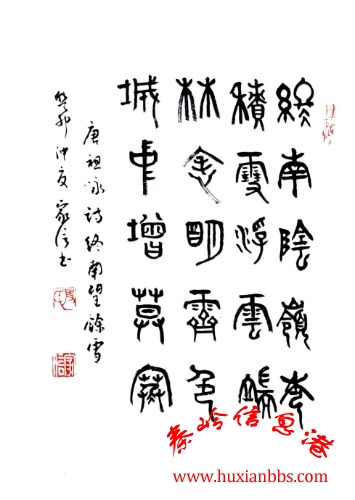 終南陰嶺秀
積雪浮雲端
林表明霽色
城中增莫寒
唐祖咏詩終南望餘雪
癸卯仲夏家信书
秦岭信息港
www.huxianbbs.com